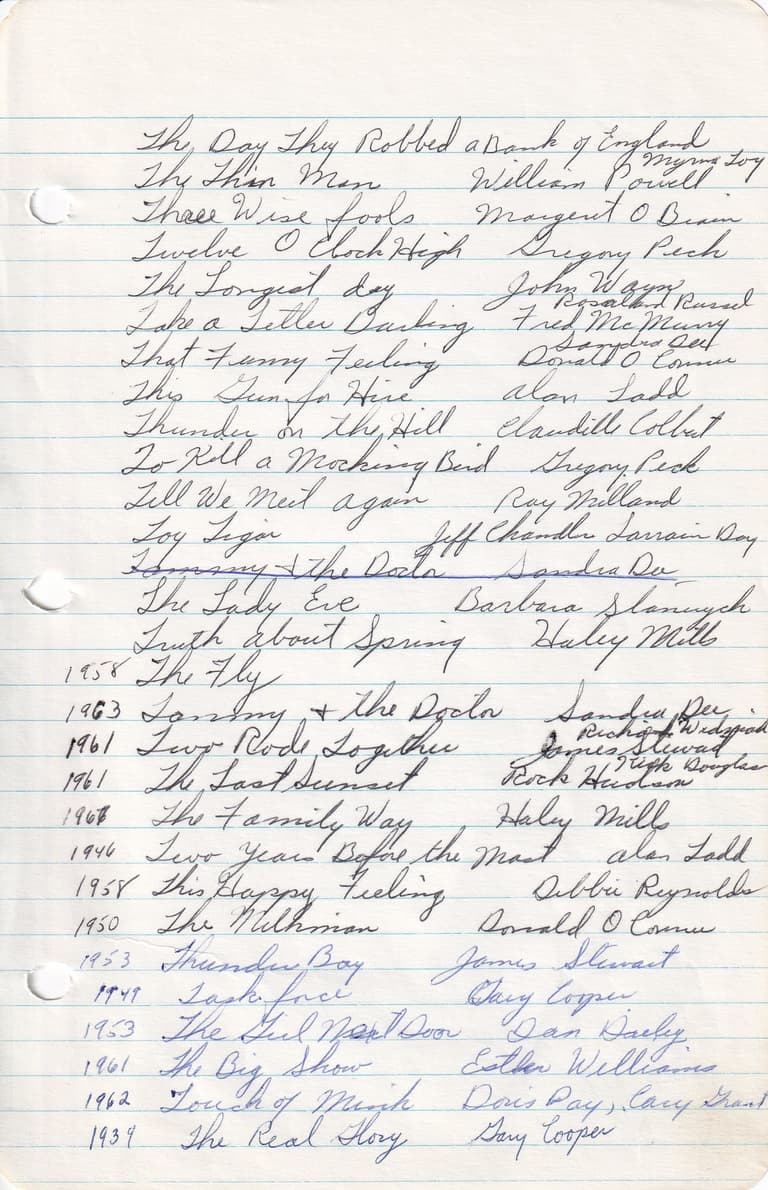 The Day They Robbed a Bank of England
Myrna Loy
The Thin Man William Powell
Three Wise fools Margeret O Brien
Twelve O Clock High Gregory Peck
The Longest day John Wayn
Rosaland Russel
Take a Letter Darling Fred McMurry
Sandra Dee
That Funny Feeling Donald O Conner
This Gun for Hire Alan Ladd
Thunder on the Hill Claudille Colbert
To Kill a Mocking Bird Gregory Peck
Till We Meet again Ray Milland
Toy Tiger Jeff Chandler Larrain Day
Tammy & the Doctor Sandra Dee
The Lady Eve Barbara Stanwych
Truth about Spring Haley Mills
1958 The Fly
1963 Tammy & the Doctor Sandra Dee
Richard Widmark
1961 Two Rode Together James Stewart
Kirk Douglas
1961 The Last Sunset Rock Hudson
1966 The Family Way Haley Mills
1946 Two Years Before the Mast Alan Ladd
1958 This Happy Feeling Debbie Reynolds
1950 The Milkman Donald O Conner
1953 Thunder Bay James Stewart
1949 Task force Gary Cooper
1953 The Girl Next Door Dan Dailey
1961 The Big Show Esther Williams
1962 Touch of Mink Doris Day, Cary Grant
1939 The Real Glory Gary Cooper